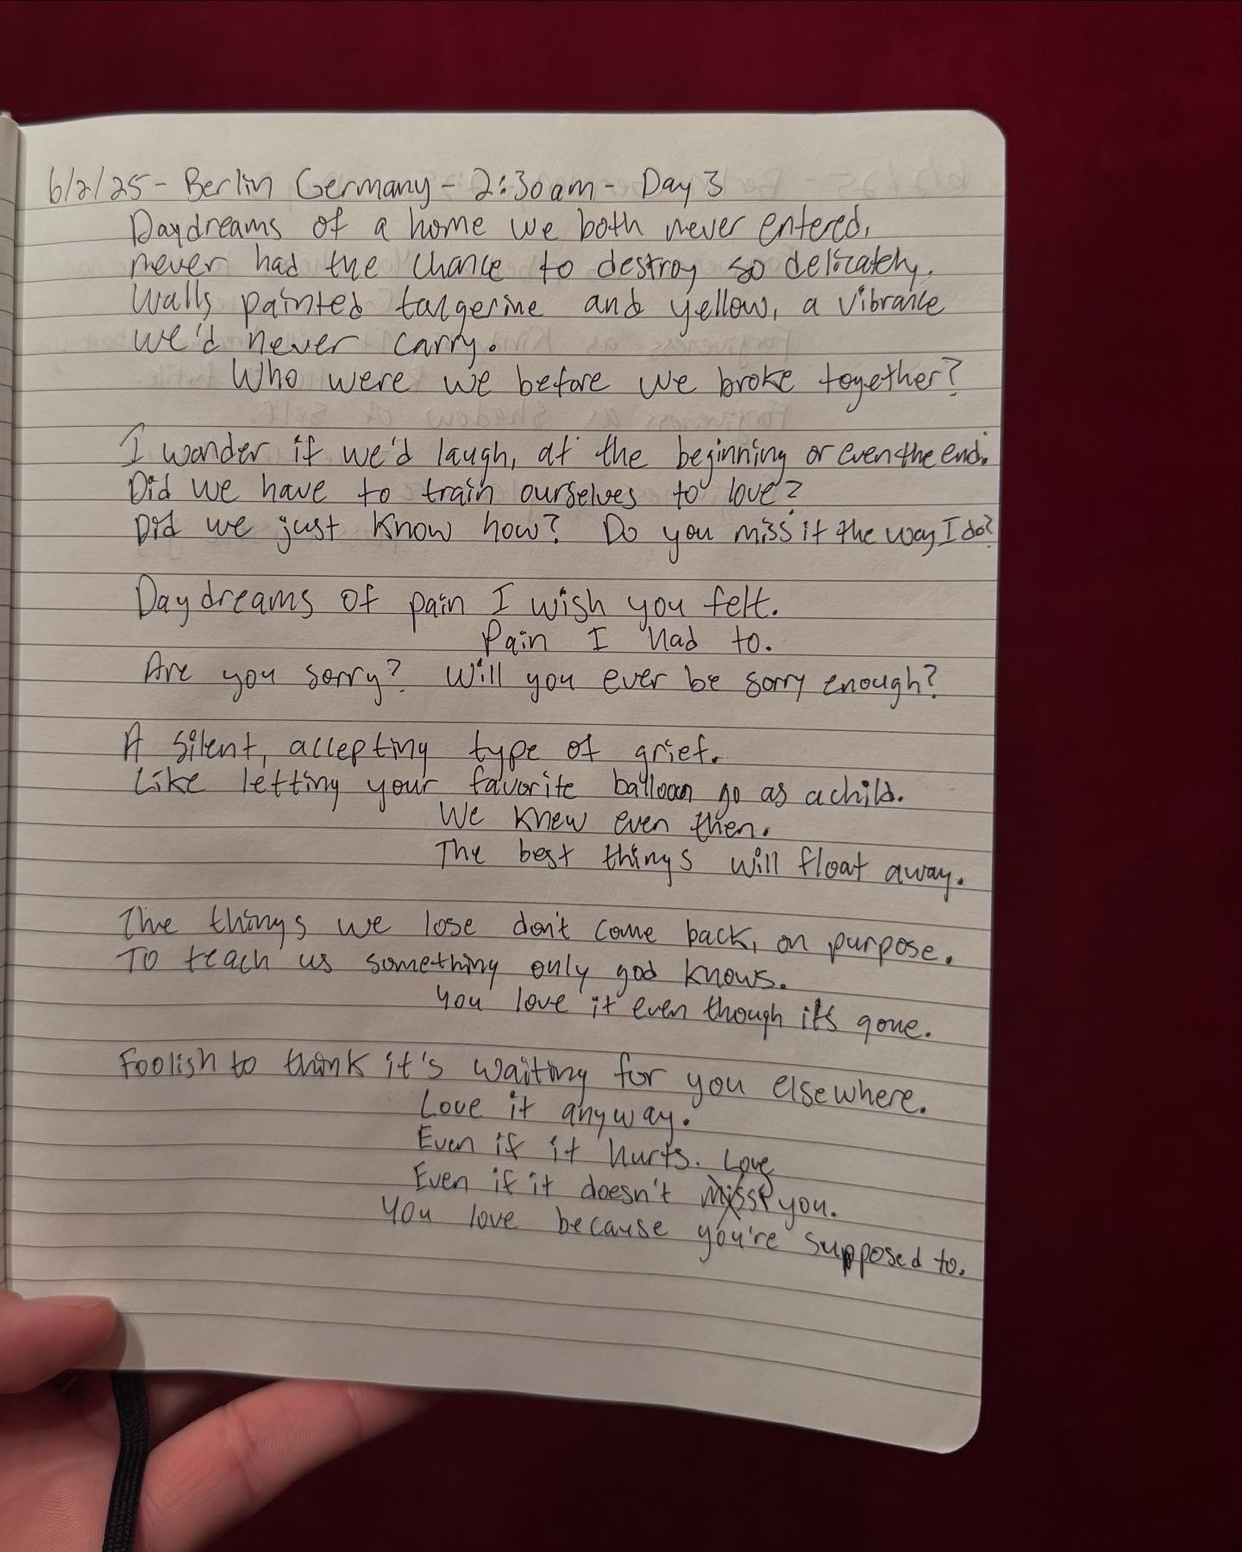 6/2/25 - Berlin Germany - 2:30am - Day 3
Daydreams of a home we both never entered,
never had the chance to destroy so delicately.
Walls painted tangerine and yellow, a vibrance
we'd never carry.
Who were we before we broke together?
I wonder if we'd laugh, at the beginning or even the end.
Did we have to train ourselves to love?
Did we just know how? Do you miss it the way I do?
Daydreams of pain I wish you felt.
Pain I had to.
Are you sorry? Will you ever be sorry enough?
A silent, accepting type of grief.
Like letting your favorite balloon go as a child.
We knew even then.
The best things will float away.
The things we lose don't come back, on purpose.
To teach us something only god knows.
You love it even though it's gone.
Foolish to think it's waiting for you elsewhere.
Love it anyway.
Even if it hurts. Love
Even if it doesn't miss you.
You love because you're supposed to.